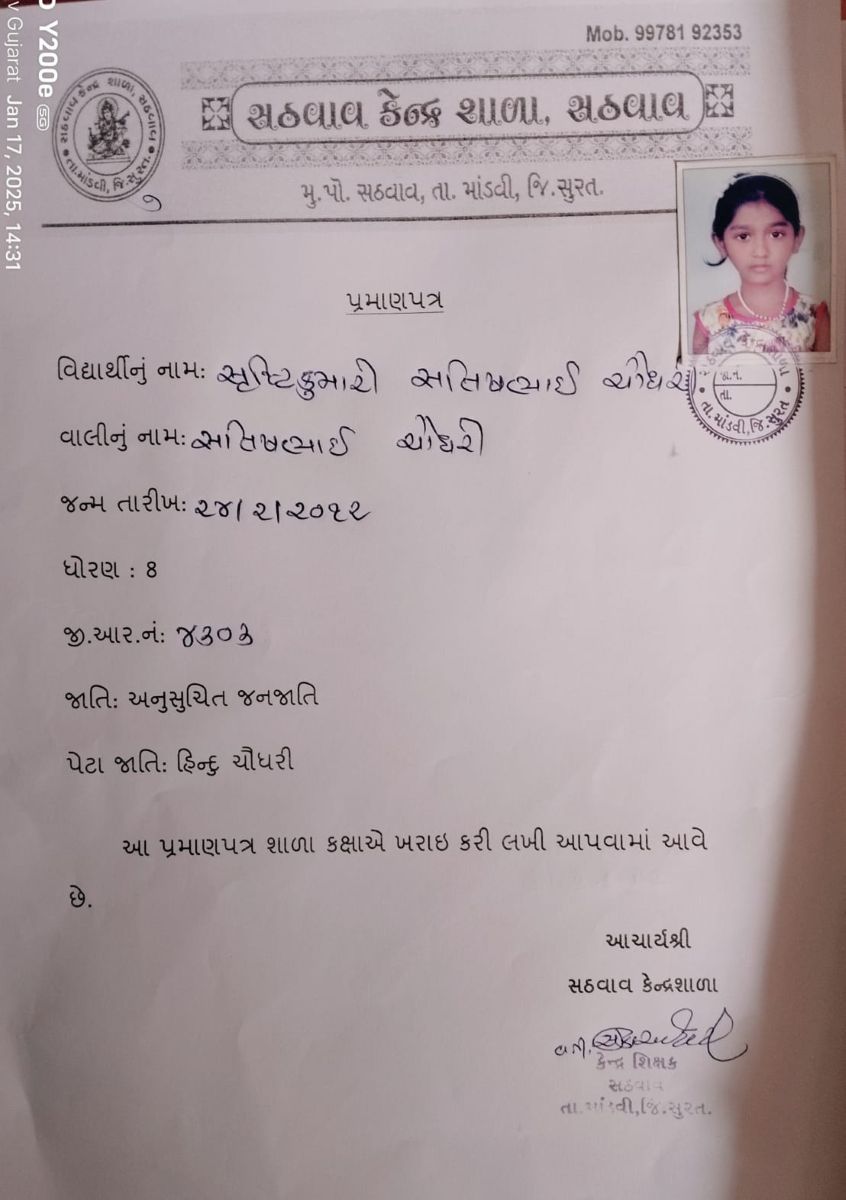 Y200e 5G
Gujarat Jan 17, 2025, 14:31
Mob. 99781 92353
સઠવાવ કેન્દ્ર શાળા, સઠવાવ
મુ.પો. સઠવાવ, તા. માંડવી, જિ.સુરત.
સઠવાવ કેન્દ્ર શાળા, સઠવાવ
તા.માંડવી, જિ.સુરત.
પ્રમાણપત્ર
વિદ્યાર્થીનું નામઃ સૃષ્ટિકુમારી સતિષભાઈ ચૌધરી
જા.નં.
તા.
તા.માંડવી,જિ.સુરત
વાલીનું નામઃ સતિષભાઈ ચૌધરી
જન્મ તારીખઃ ૨૪/૨/૨૦૧૨
ધોરણ : 8
જી.આર.નંઃ ૪૩૦૩
જાતિઃ અનુસુચિત જનજાતિ
પેટા જાતિઃ હિન્દુ ચૌધરી
આ પ્રમાણપત્ર શાળા કક્ષાએ ખરાઇ કરી લખી આપવામાં આવે
છે.
આચાર્યશ્રી
સઠવાવ કેન્દ્રશાળા
વતી,
કેન્દ્ર શિક્ષક
સઠવાવ
તા.માંડવી,જિ.સુરત.